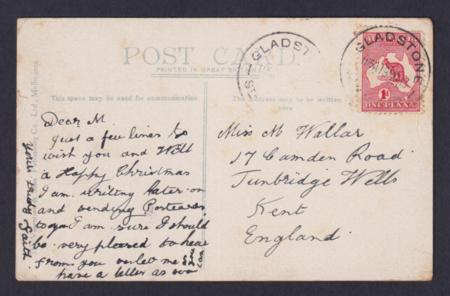 POST CARD
PRINTED IN GREAT
This space may be used for communication
The address only to be written
Dear M.
Just a few lines to
wish you and Will
a Happy Christmas
I am writing later on
and sending Postcards
to you I am sure I should
be very pleased to hear
from you so let me
have a letter as soon
as you can
Miss M Wallar
17 Camden Road
Tunbridge Wells
Kent
England
GLADST
GLADSTONE
ONE PENNY